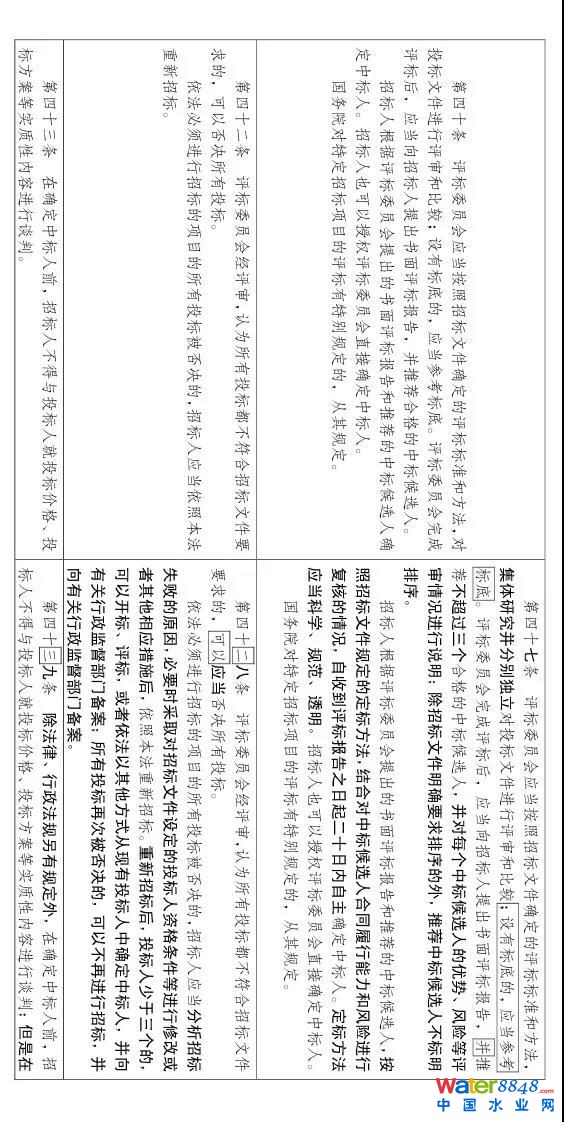 第四十条 评标委员会应当按照招标文件确定的评标标准和方法，对
投标文件进行评审和比较；设有标底的，应当参考标底。评标委员会完成
评标后，应当向招标人提出书面评标报告，并推荐合格的中标候选人。
招标人根据评标委员会提出的书面评标报告和推荐的中标候选人确
定中标人。招标人也可以授权评标委员会直接确定中标人。
国务院对特定招标项目的评标有特别规定的，从其规定。
第四十七条 评标委员会应当按照招标文件确定的评标标准和方法，
集体研究并分别独立对投标文件进行评审和比较；设有标底的，应当参考
标底。评标委员会完成评标后，应当向招标人提出书面评标报告，并推
荐不超过三个合格的中标候选人，并对每个中标候选人的优势、风险等评
审情况进行说明；除招标文件明确要求排序的外，推荐中标候选人不标明
排序。
招标人根据评标委员会提出的书面评标报告和推荐的中标候选人，按
照招标文件规定的定标方法，结合对中标候选人合同履行能力和风险进行
复核的情况，自收到评标报告之日起二十日内自主确定中标人。定标方法
应当科学、规范、透明。招标人也可以授权评标委员会直接确定中标人。
国务院对特定招标项目的评标有特别规定的，从其规定。
第四十二条 评标委员会经评审，认为所有投标都不符合招标文件要
求的，可以否决所有投标。
依法必须进行招标的项目的所有投标被否决的，招标人应当依照本法
重新招标。
第四十二八条 评标委员会经评审，认为所有投标都不符合招标文件
要求的，可以应当否决所有投标。
依法必须进行招标的项目的所有投标被否决的，招标人应当分析招标
失败的原因，必要时采取对招标文件设定的投标人资格条件等进行修改或
者其他相应措施后，依照本法重新招标。重新招标后，投标人少于三个的，
可以开标、评标，或者依法以其他方式从现有投标人中确定中标人，并向
有关行政监督部门备案；所有投标再次被否决的，可以不再进行招标，并
向有关行政监督部门备案。
第四十三条 在确定中标人前，招标人不得与投标人就投标价格、投
标方案等实质性内容进行谈判。
第四十三九条 除法律、行政法规另有规定外，在确定中标人前，招
标人不得与投标人就投标价格、投标方案等实质性内容进行谈判；但是在
Water8848.com
中国水业网